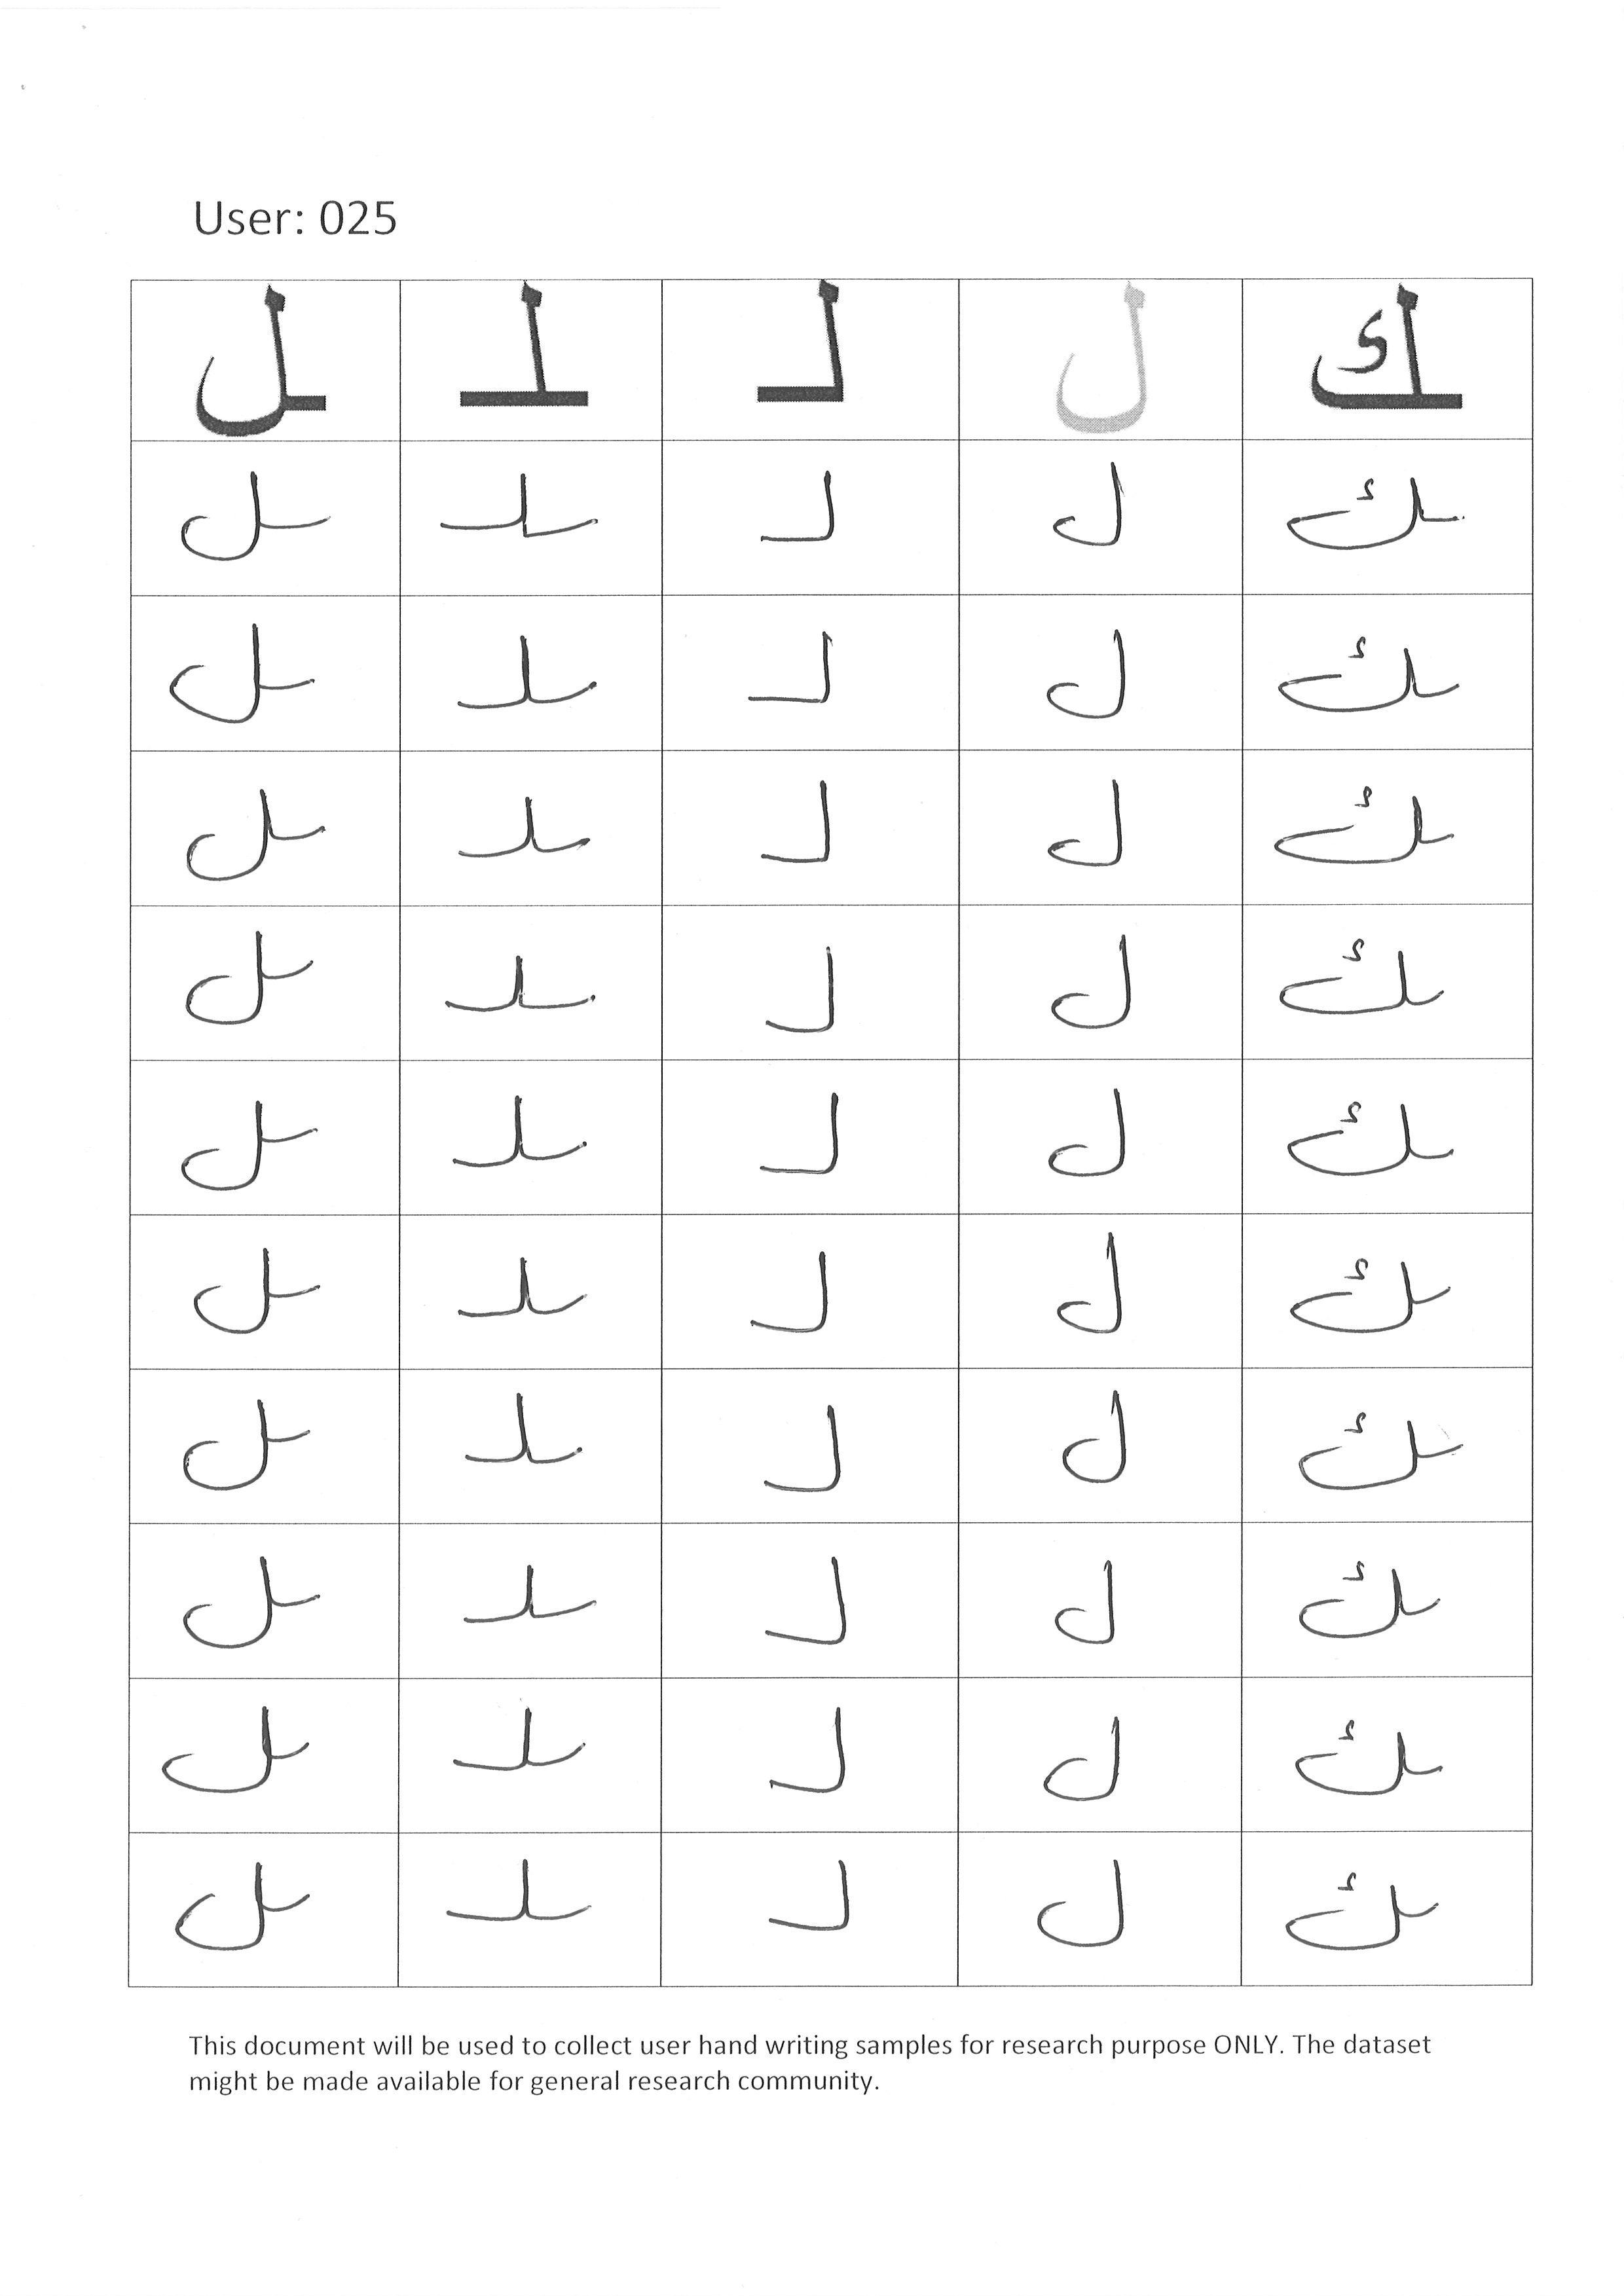 User: 025
ك ل لـ ـلـ ـل
ـك ل لـ ـلـ ـل
ـك ل لـ ـلـ ـل
ـك ل لـ ـلـ ـل
ـك ل لـ ـلـ ـل
ـك ل لـ ـلـ ـل
ـك ل لـ ـلـ ـل
ـك ل لـ ـلـ ـل
ـك ل لـ ـلـ ـل
ـك ل لـ ـلـ ـل
ـك ل لـ ـلـ ـل
This document will be used to collect user hand writing samples for research purpose ONLY. The dataset
might be made available for general research community.